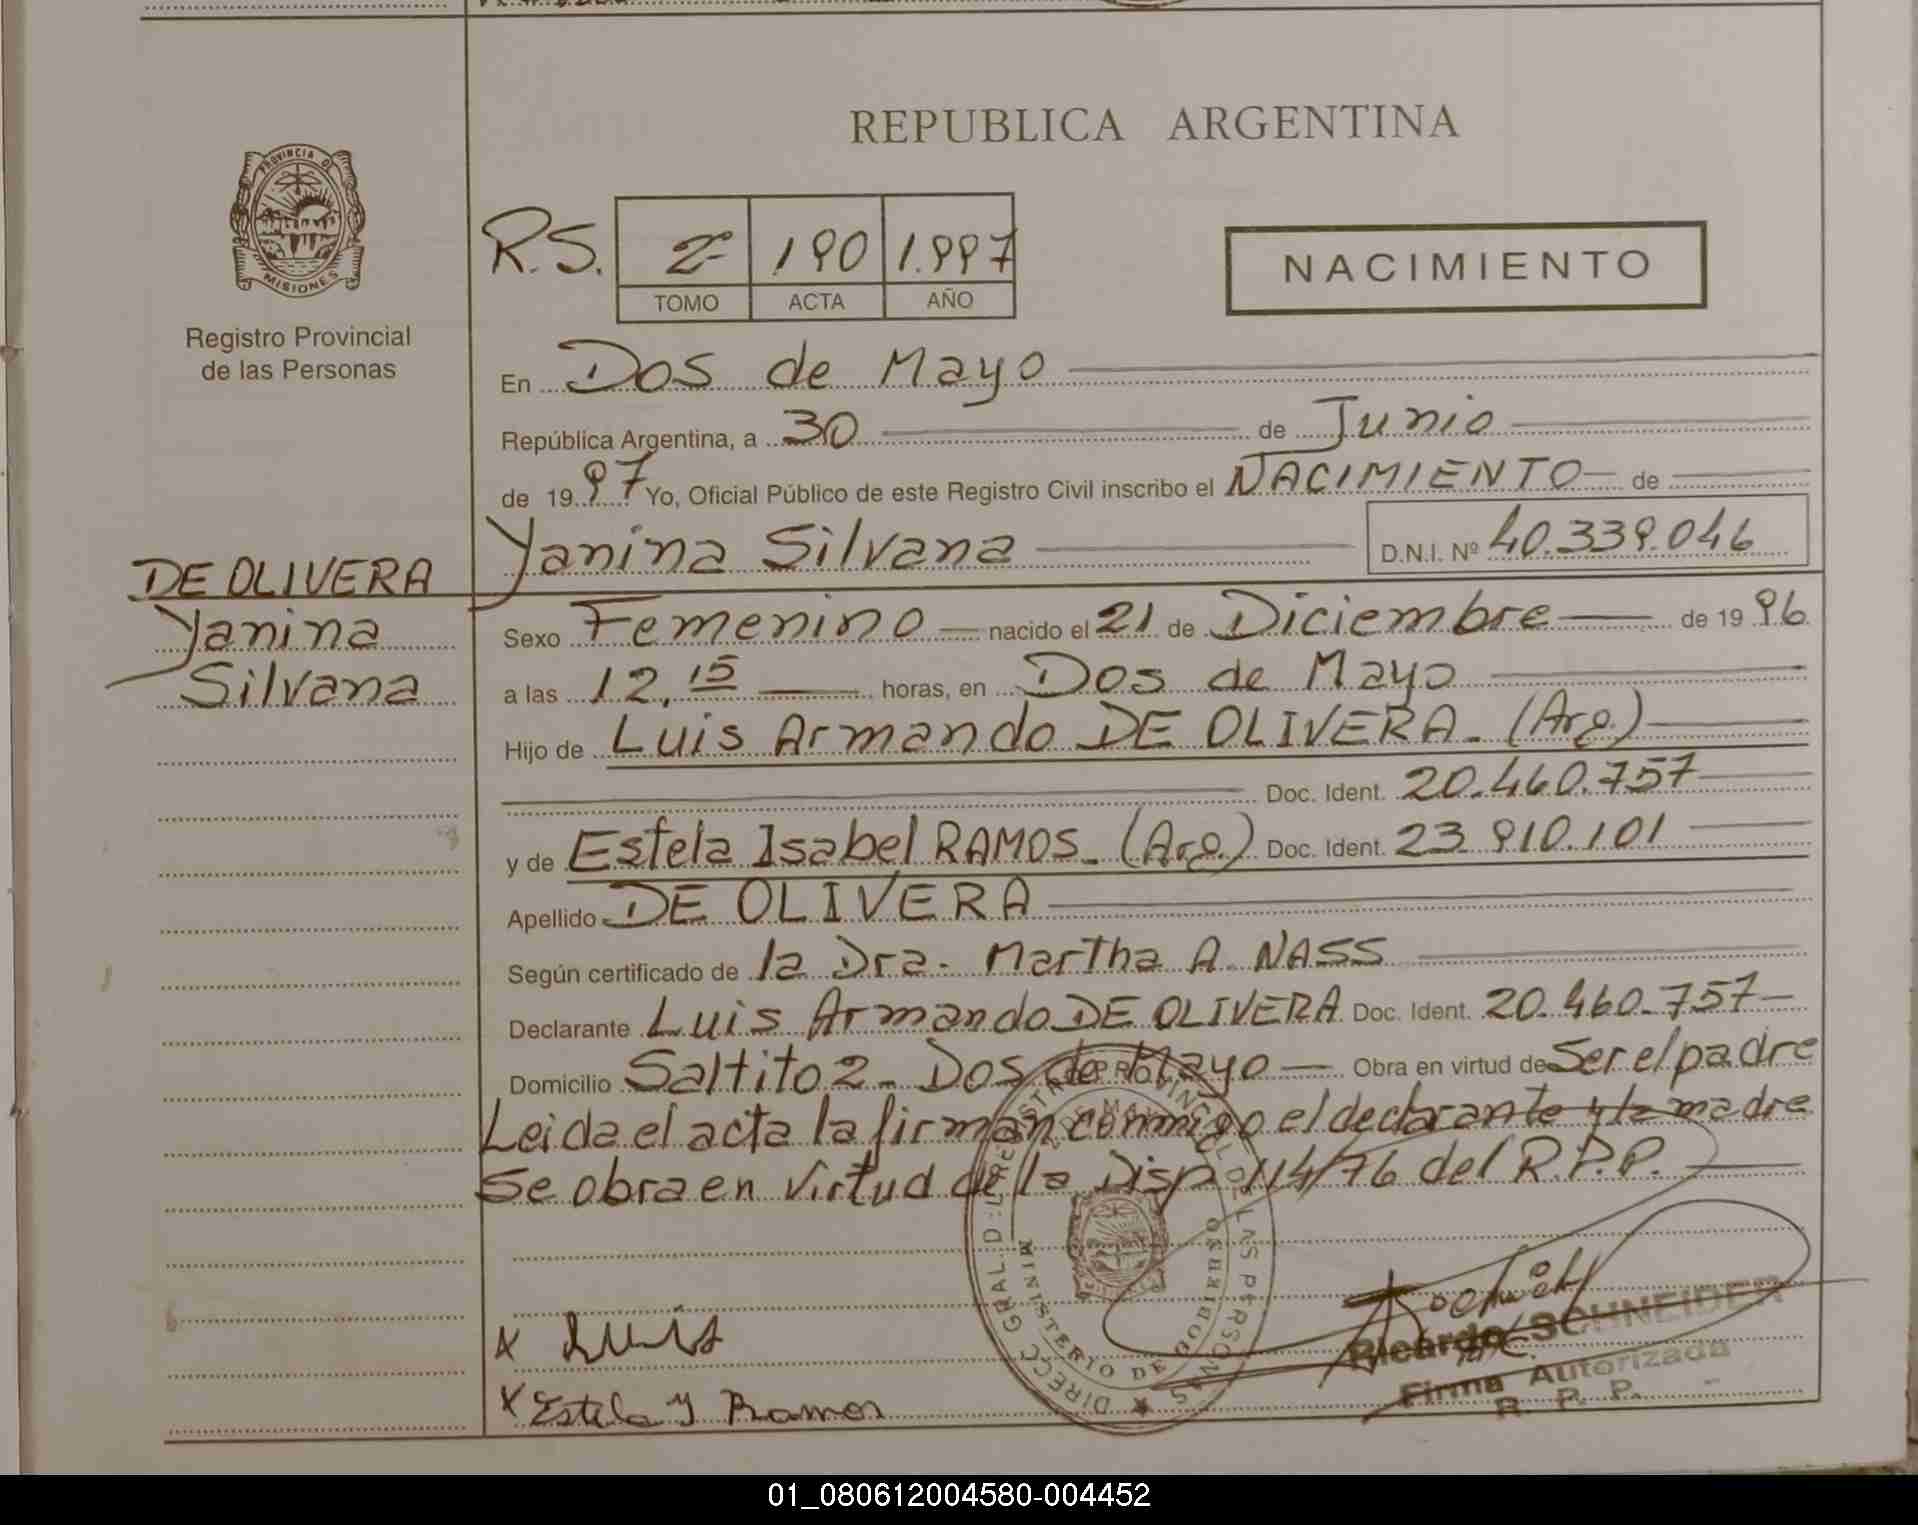 REPUBLICA ARGENTINA
PROVINCIA D
MISIONES
Registro Provincial
de las Personas
R.S. 2º 190 1.997
TOMO ACTA AÑO
NACIMIENTO
En Dos de Mayo
República Argentina, a 30 de Junio
de 1997 Yo, Oficial Público de este Registro Civil inscribo el NACIMIENTO de
Yanina Silvana D.N.I. Nº 40.339.046
DE OLIVERA
Yanina
Silvana
Sexo Femenino nacido el 21 de Diciembre de 1996
a las 12,15 horas, en Dos de Mayo
Hijo de Luis Armando DE OLIVERA. (Arg.)
Doc. Ident. 20.460.757
y de Estela Isabel RAMOS. (Arg.) Doc. Ident. 23.910.101
Apellido DE OLIVERA
Según certificado de la Dra. Martha A. NASS
Declarante Luis Armando DE OLIVERA Doc. Ident. 20.460.757
Domicilio Saltito 2 - Dos de Mayo Obra en virtud de Ser el padre
Leida el acta la firman conmigo el declarante y la madre
Se obra en virtud de la Disp 114/76 del R.P.P.
MINISTERIO DE GOBIERNO
x Luis
x Estela Y Ramos
Ricardo SCHNEIDER
Firma Autorizada
R. P. P.
01_080612004580-004452